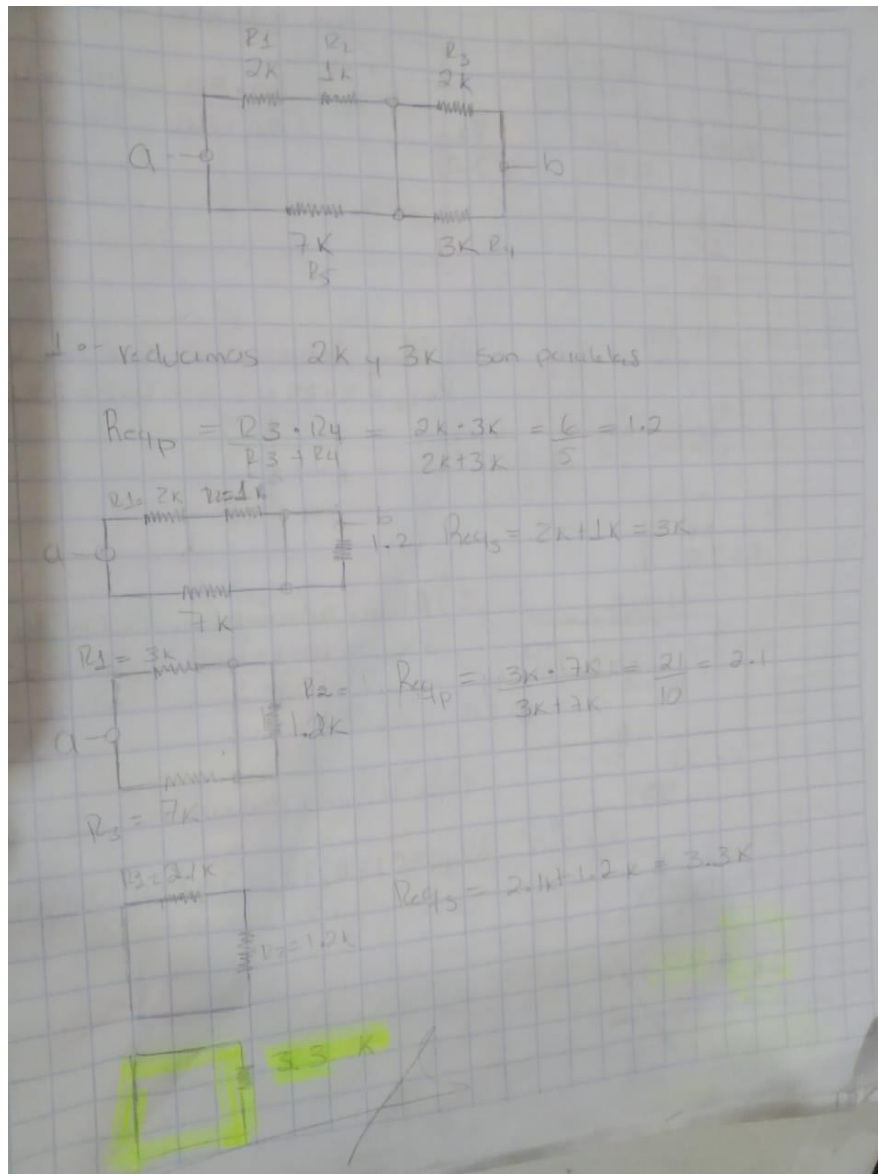 R1 R2 R3
2K 1K 2K
a b
7K 3K R4
R5
1.- reducimos 2K y 3K son paralelas
Reqp = R3 · R4 / R3 + R4 = 2K · 3K / 2K+3K = 6 / 5 = 1.2
R1= 2K R2=1K
a b 1.2 Reqs = 2K+1K = 3K
7K
R1 = 3K
a R2 = 1.2K Reqp = 3K · 7K / 3K+7K = 21 / 10 = 2.1
R3 = 7K
2.1K
R2=1.2K Reqs = 2.1K+1.2K = 3.3K
3.3 K